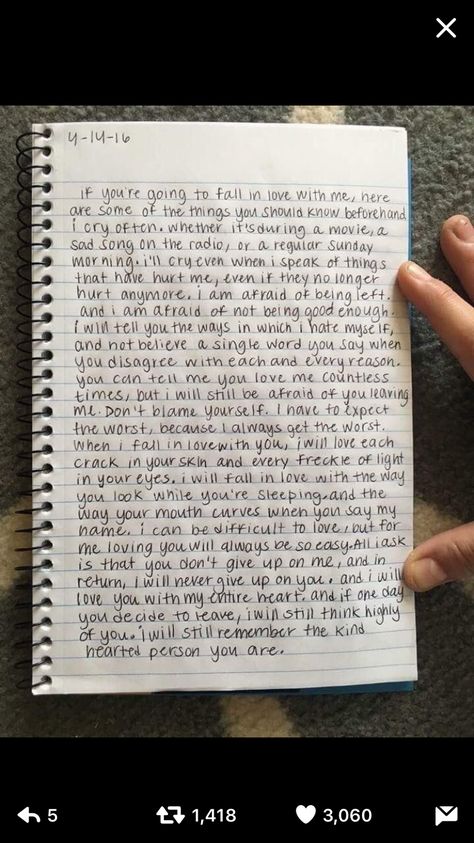 4-14-16
if you're going to fall in love with me, here
are some of the things you should know beforehand
i cry often. whether it's during a movie, a
sad song on the radio, or a regular sunday
morning. i'll cry even when i speak of things
that have hurt me, even if they no longer
hurt anymore. i am afraid of being left.
and i am afraid of not being good enough.
i will tell you the ways in which i hate myself,
and not believe a single word you say when
you disagree with each and every reason.
you can tell me you love me countless
times, but i will still be afraid of you leaving
me. Don't blame yourself. I have to expect
the worst, because I always get the worst.
when i fall in love with you, i will love each
crack in your skin and every freckle of light
in your eyes. i will fall in love with the way
you look while you're sleeping. and the
way your mouth curves when you say my
name. i can be difficult to love, but for
me loving you will always be so easy. All i ask
is that you don't give up on me, and in
return, i will never give up on you. and i will
love you with my entire heart. and if one day
you decide to leave, i will still think highly
of you. i will still remember the kind
hearted person you are.
5 1,418 3,060